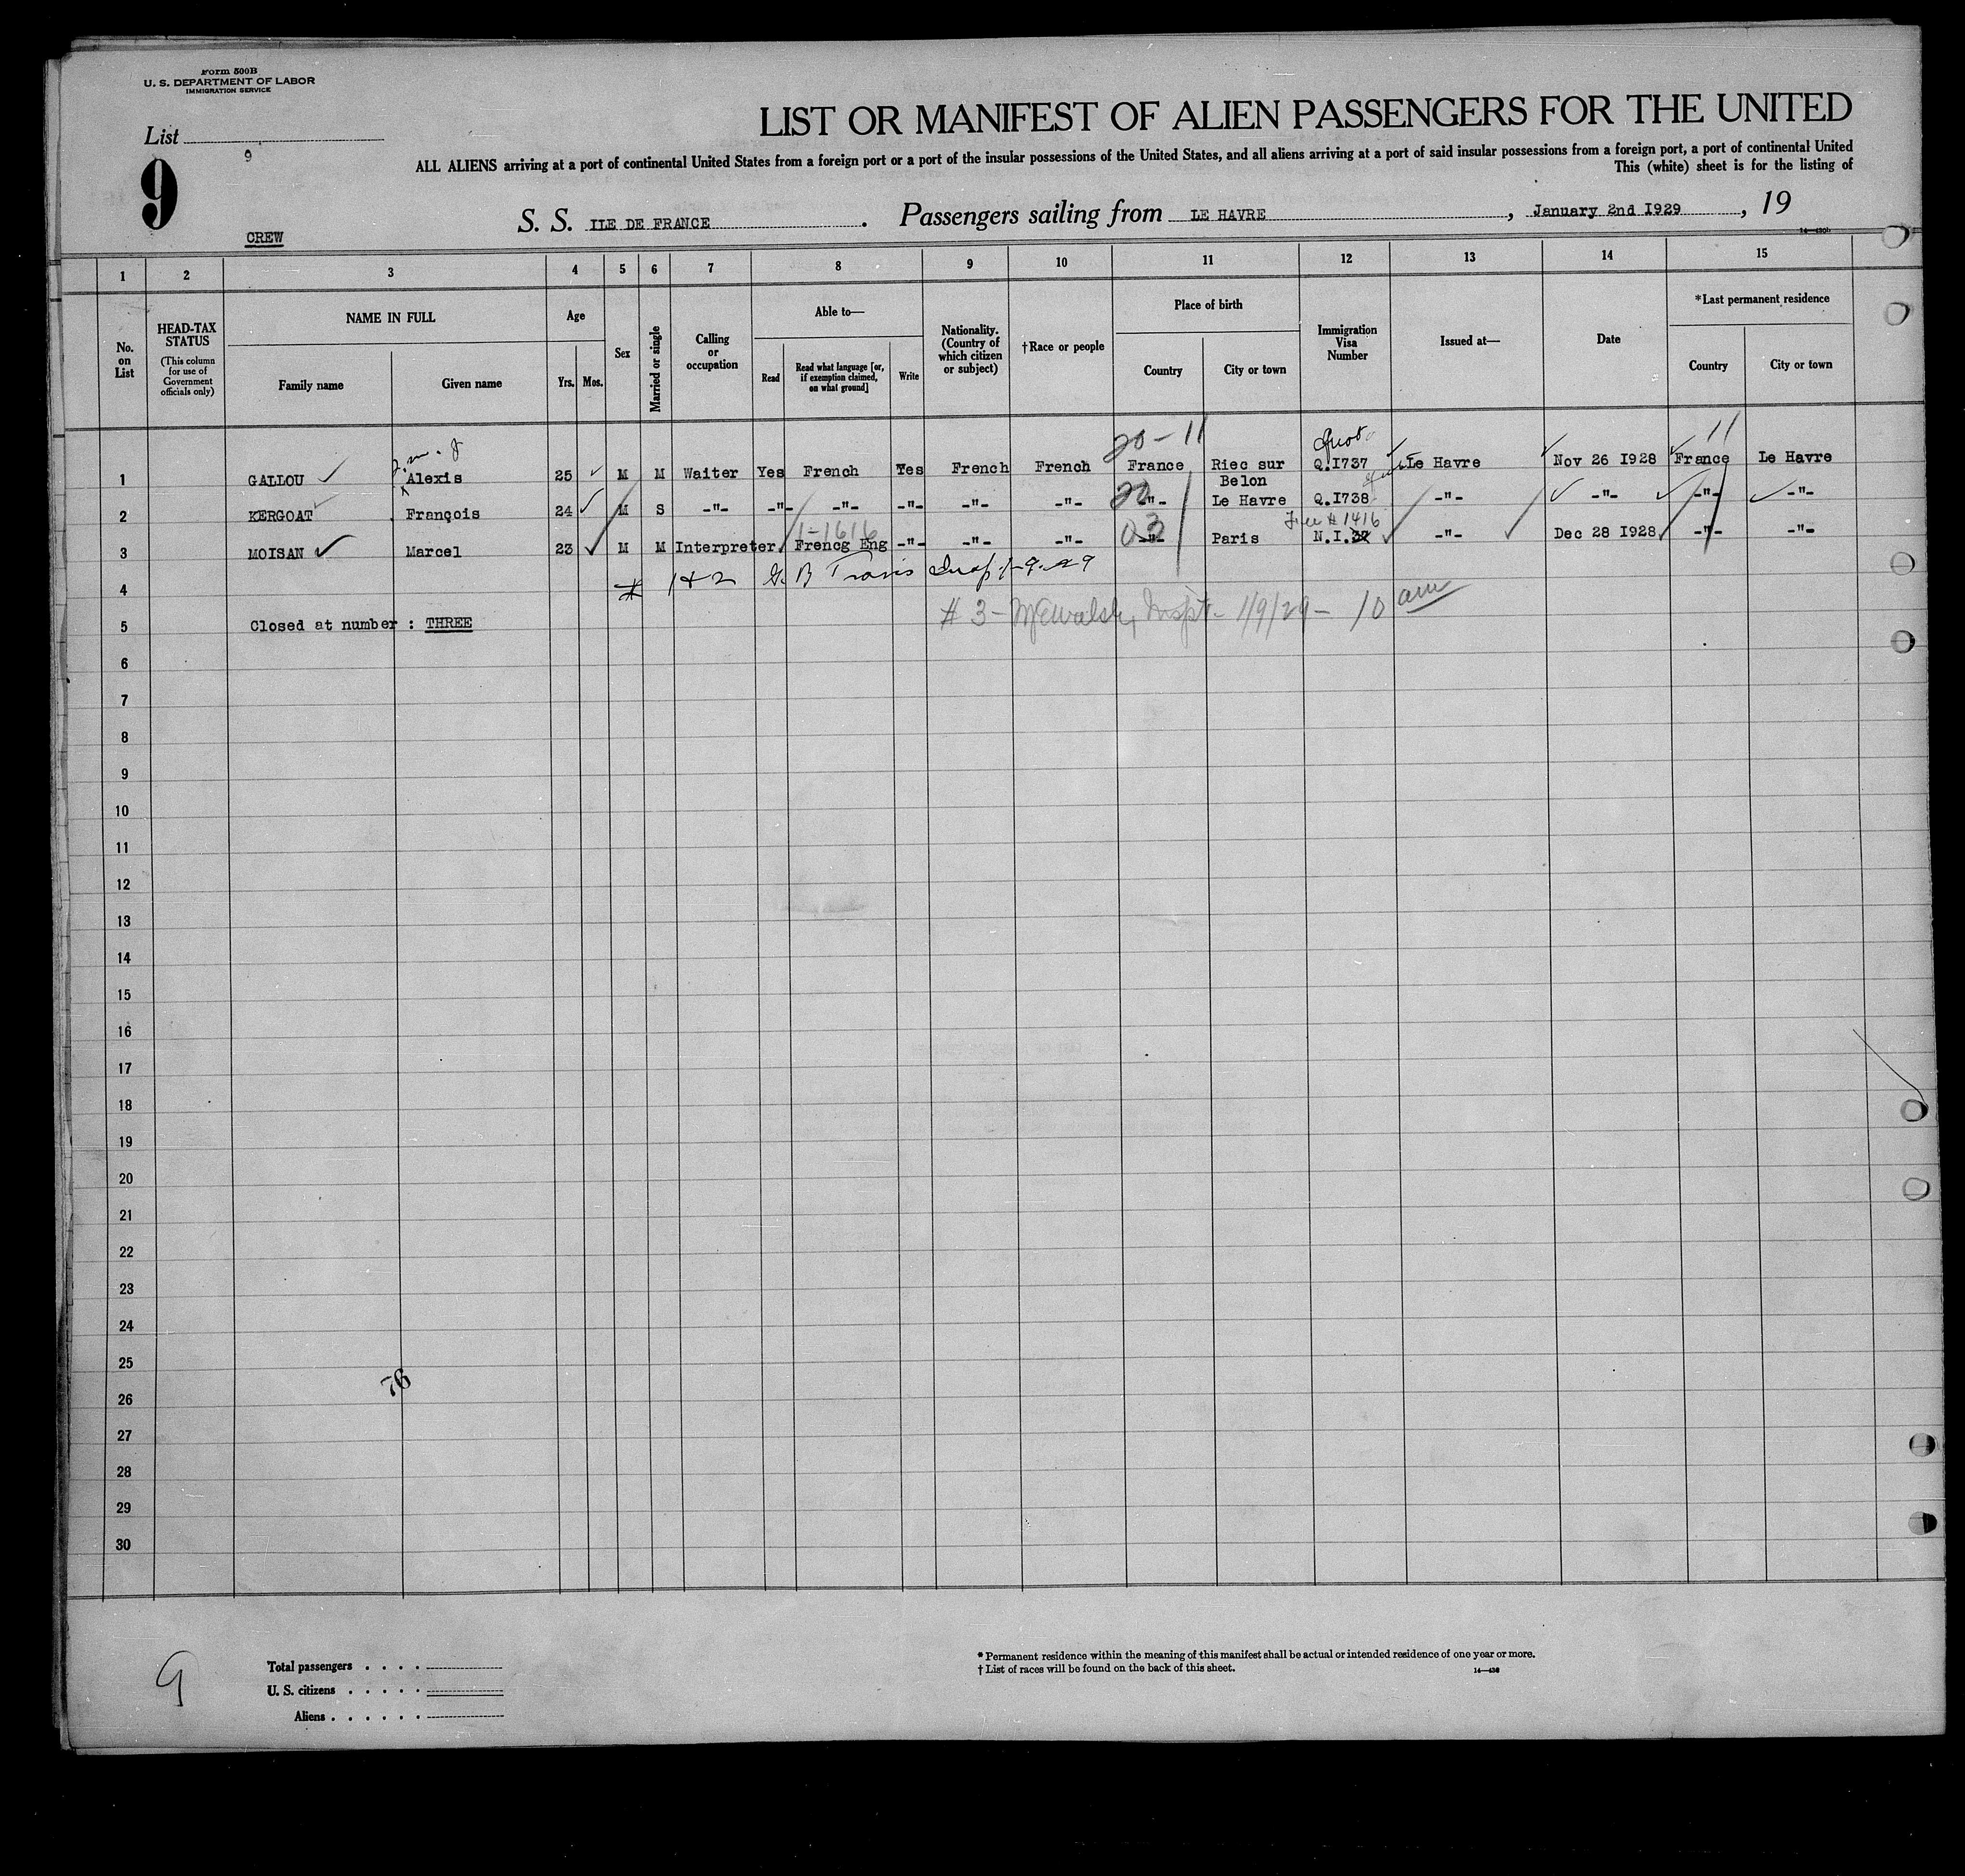 Form 500B
U. S. DEPARTMENT OF LABOR
IMMIGRATION SERVICE
LIST OR MANIFEST OF ALIEN PASSENGERS FOR THE UNITED
List
9
9
ALL ALIENS arriving at a port of continental United States from a foreign port or a port of the insular possessions of the United States, and all aliens arriving at a port of said insular possessions from a foreign port, a port of continental United
This (white) sheet is for the listing of
CREW
S. S. ILE DE FRANCE. Passengers sailing from LE HAVRE, January 2nd I929, 19
1 2 3 4 5 6 7 8 9 10 11 12 13 14 15
No. on List
HEAD-TAX STATUS
(This column for use of Government officials only)
NAME IN FULL
Family name Given name
Age
Yrs. Mos.
Sex
Married or single
Calling or occupation
Able to—
Read
Read what language [or, if exemption claimed, on what ground]
Write
Nationality. (Country of which citizen or subject)
†Race or people
Place of birth
Country City or town
Immigration Visa Number
Issued at—
Date
*Last permanent residence
Country City or town
20 - 11 11
1 GALLOU Alexis 25 M M Waiter Yes French Yes French French France Riec sur Belon Q.I737 Le Havre Nov 26 I928 France Le Havre
2 KERGOAT François 24 M S -"- -"- -"- -"- -"- -"- -"- Le Havre Q.I738 -"- -"- -"- -"-
1-1616
3 MOISAN Marcel 23 M M Interpreter Frencg Eng -"- -"- -"- -"- Paris N.I. -"- Dec 28 I928 -"- -"-
4 1 & 2 G. B Travis Insp 1-9-29
# 3 - Inspt - 1/9/29 - 10 am
5 Closed at number : THREE
6
7
8
9
10
11
12
13
14
15
16
17
18
19
20
21
22
23
24
25
76
26
27
28
29
30
9
Total passengers
U. S. citizens
Aliens
* Permanent residence within the meaning of this manifest shall be actual or intended residence of one year or more.
† List of races will be found on the back of this sheet.
14—436